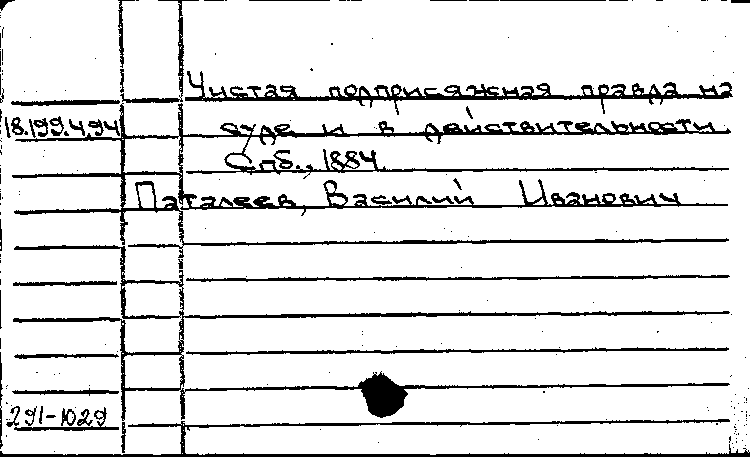 Чистая подприсяжная правда на
18.199.4.94 суде и в действительности.
Спб., 1884.
Паталеев, Василий Иванович
291-1029